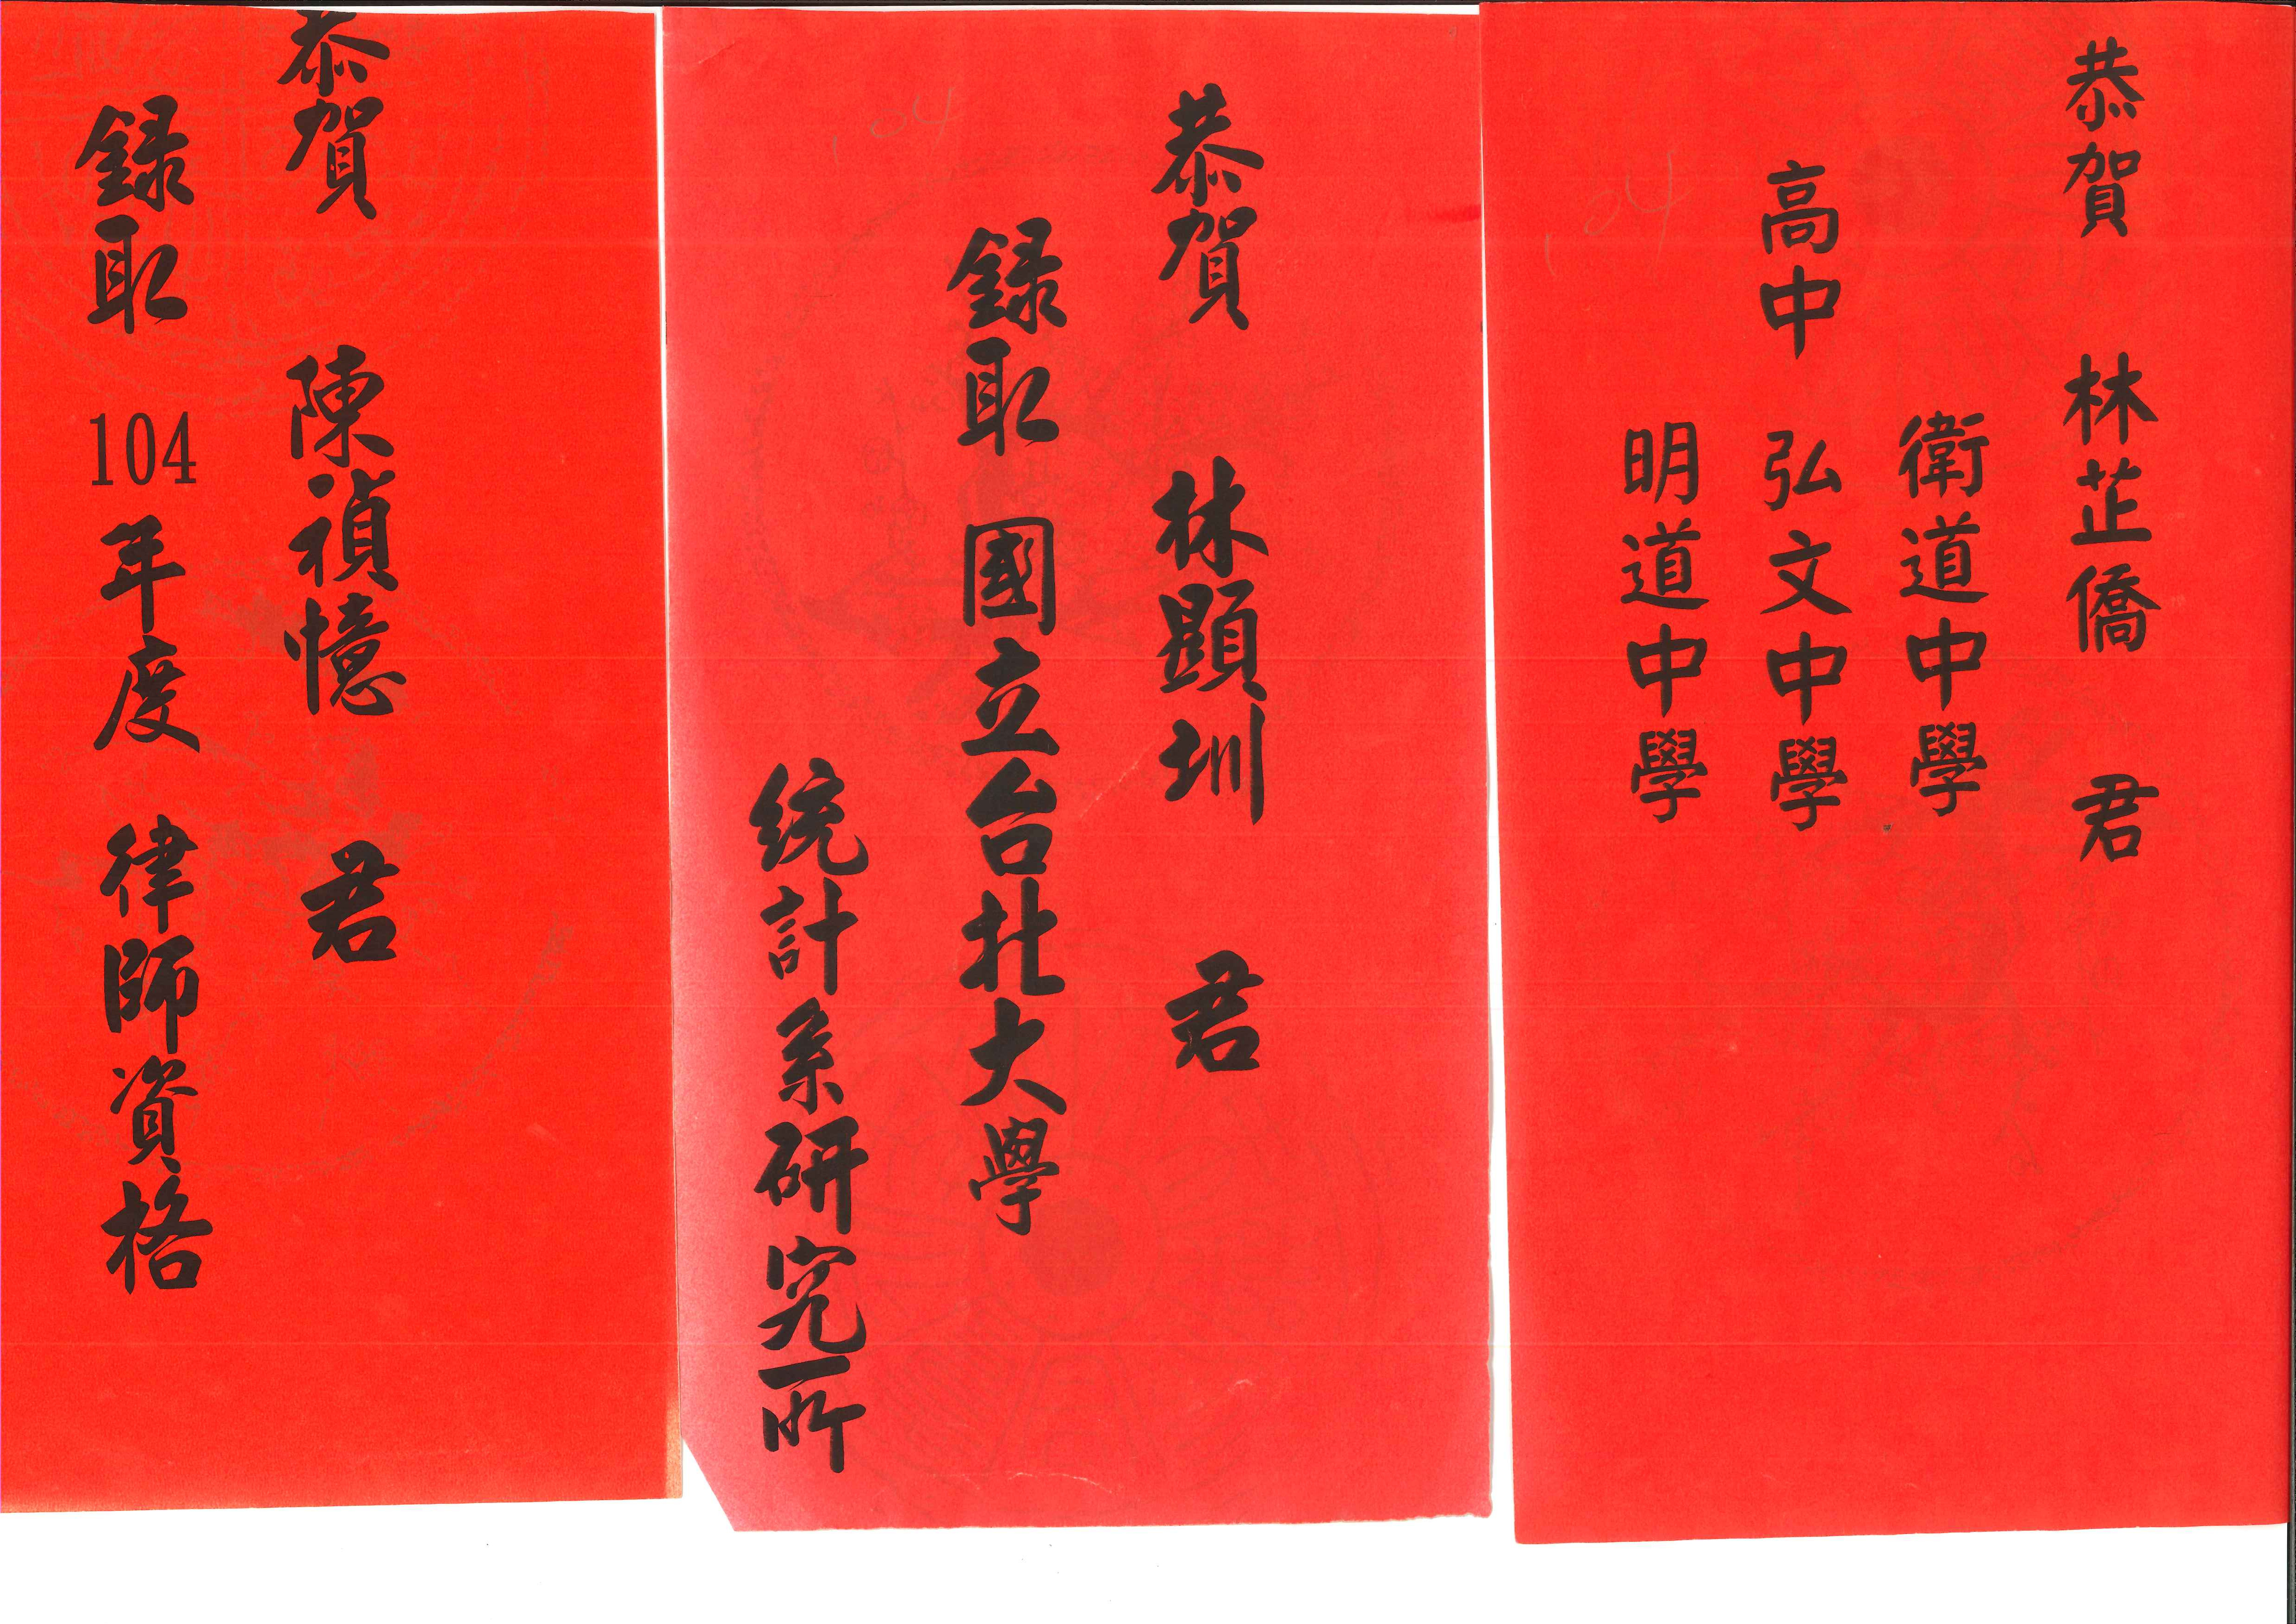 恭賀 林芷僑 君
衛道中學
高中 弘文中學
明道中學
104
恭賀 林顯圳 君
錄取 國立台北大學
統計系研究所
104
恭賀 陳禎憶 君
錄取 104 年度 律師資格